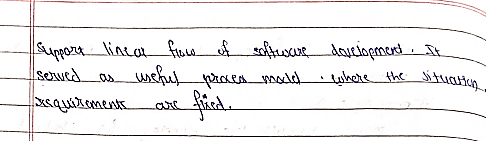 Support linear flow of software development. It
served as useful process model. where the situation,
requirements are fixed.